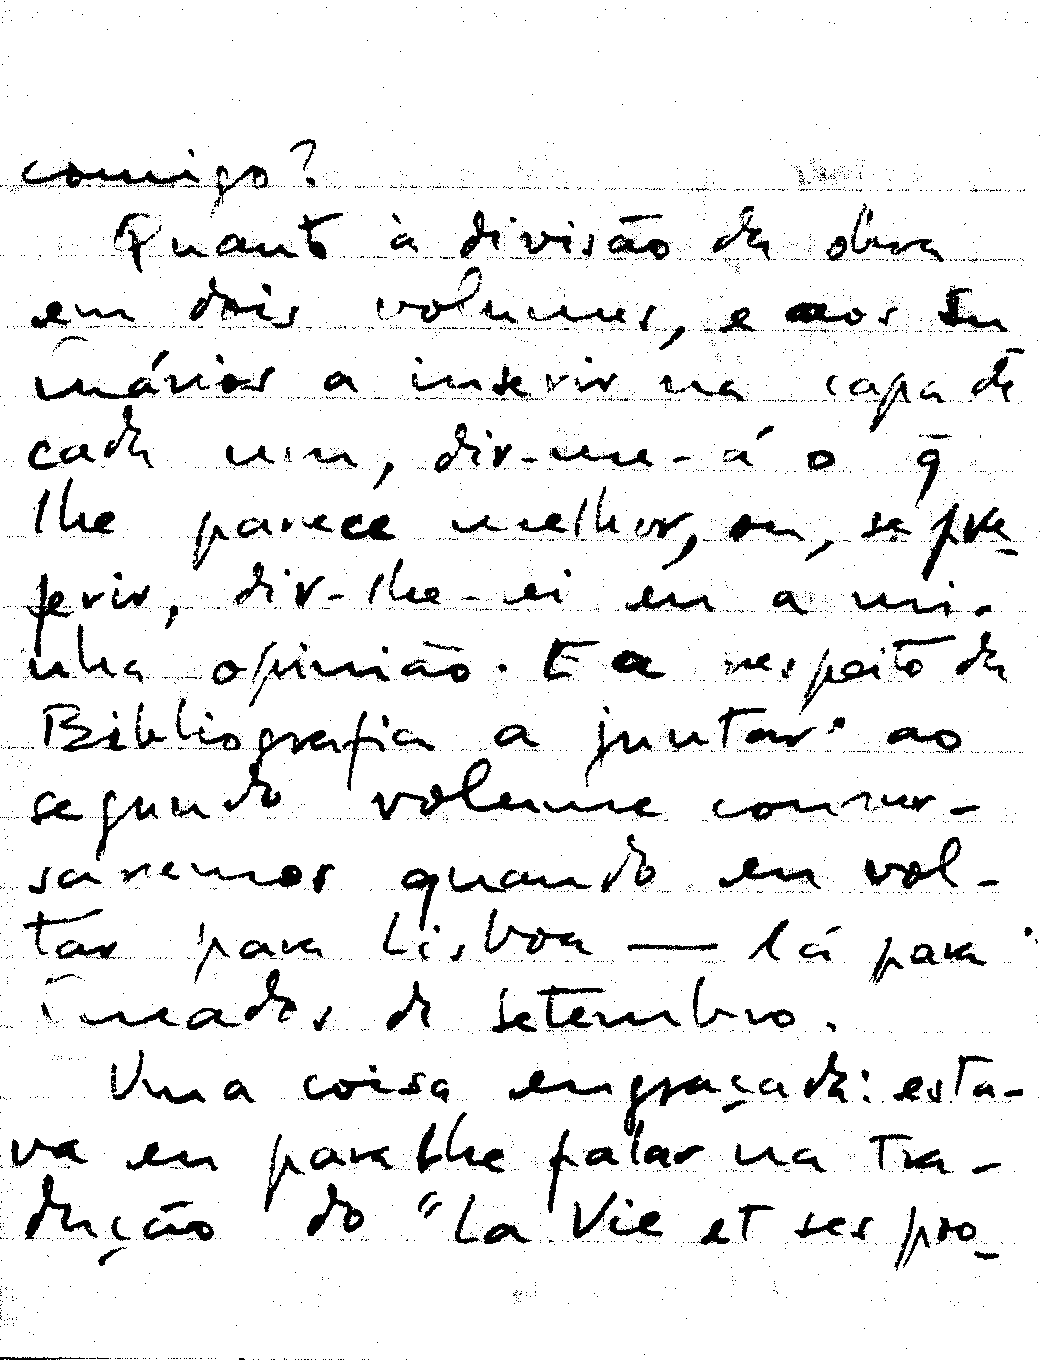 comigo?
Quanto à divisão da obra
em dois volumes, e aos su
mários a inserir na capa de
cada um, dir-me-á o q̃
lhe parece melhor, ou, se pre-
ferir, dir-lhe-ei eu a mi-
nha opinião. E a respeito da
Bibliografia a juntar ao
segundo volume conver-
saremos quando eu vol-
tar para Lisboa — lá para
meados de setembro.
Uma coisa engraçada: esta-
va eu para lhe falar na tra-
dução do "La Vie et ses pro-